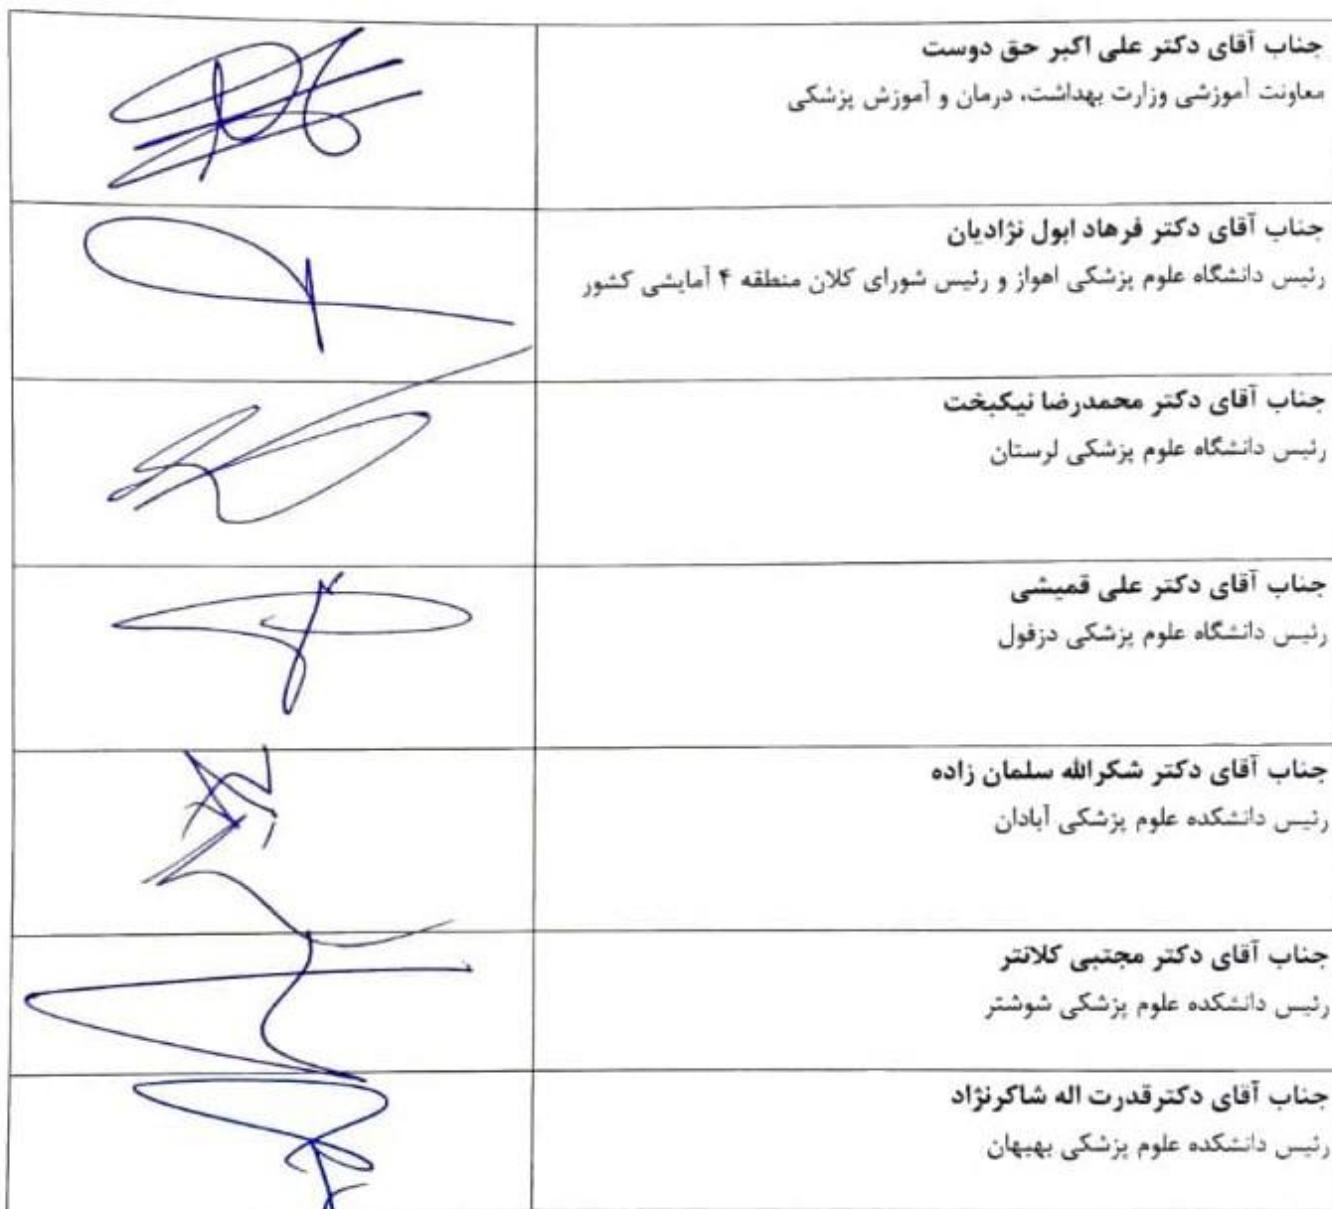 جناب آقای دکتر علی اکبر حق دوست
معاونت آموزشی وزارت بهداشت، درمان و آموزش پزشکی
جناب آقای دکتر فرهاد ابول نژادیان
رئیس دانشگاه علوم پزشکی اهواز و رئیس شورای کلان منطقه ۴ آمایشی کشور
جناب آقای دکتر محمدرضا نیکبخت
رئیس دانشگاه علوم پزشکی لرستان
جناب آقای دکتر علی قمیشی
رئیس دانشگاه علوم پزشکی دزفول
جناب آقای دکتر شکرالله سلمان زاده
رئیس دانشکده علوم پزشکی آبادان
جناب آقای دکتر مجتبی کلانتر
رئیس دانشکده علوم پزشکی شوشتر
جناب آقای دکترقدرت اله شاکرنژاد
رئیس دانشکده علوم پزشکی بهبهان